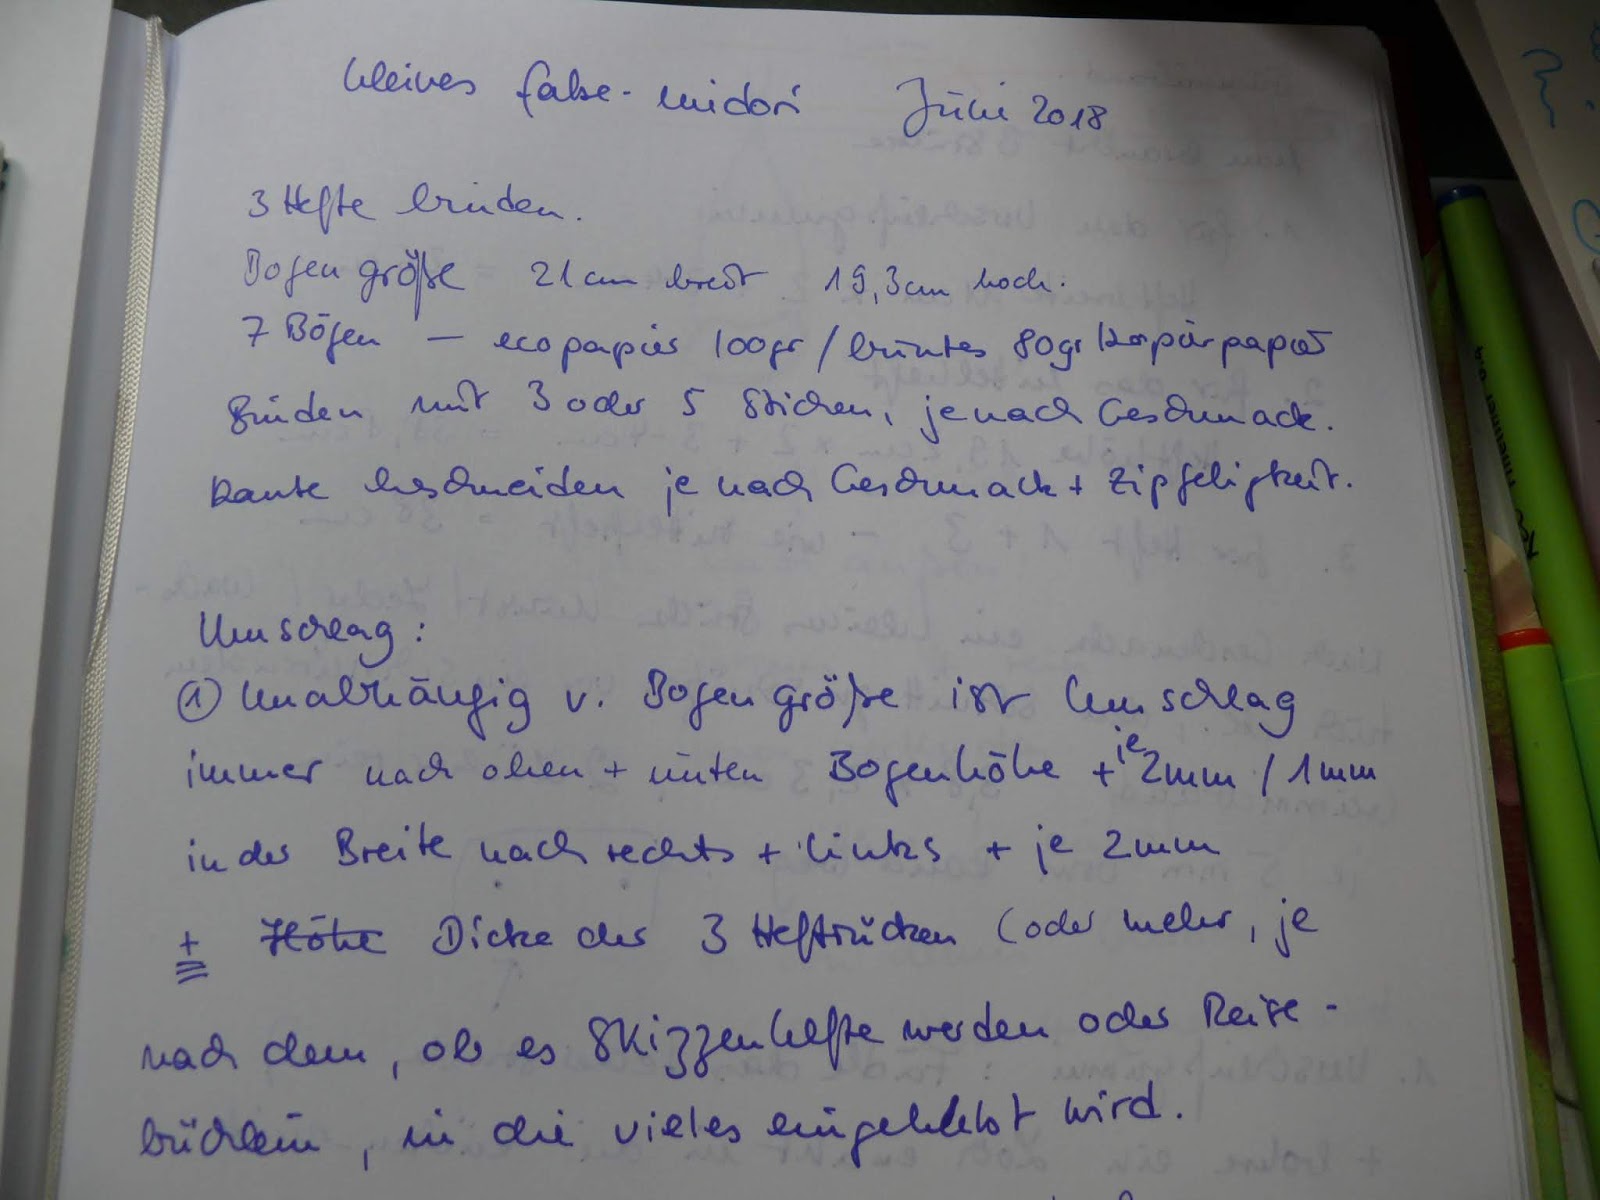 kleines false-midori Juni 2018
3 Hefte binden.
Bogengröße 21cm breit 19,3cm hoch.
7 Bögen — ecopapier 100gr / buntes 80gr Kopierpapier
Binden mit 3 oder 5 Stichen, je nach Geschmack.
Kante beschneiden je nach Geschmack + Zipfeligkeit.
Umschlag:
① Unabhängig v. Bogengröße ist Umschlag
immer nach oben + unten Bogenhöhe + je 2mm / 1mm
in der Breite nach rechts + links + je 2mm
+ Höhe Dicke der 3 Heftrücken (oder mehr, je
nach dem, ob es Skizzenhefte werden oder Reise-
büchlein, in die vieles eingeklebt wird.